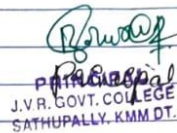 Principal
PRINCIPAL
J.V.R. GOVT. COLLEGE
SATHUPALLY, KMM DT.